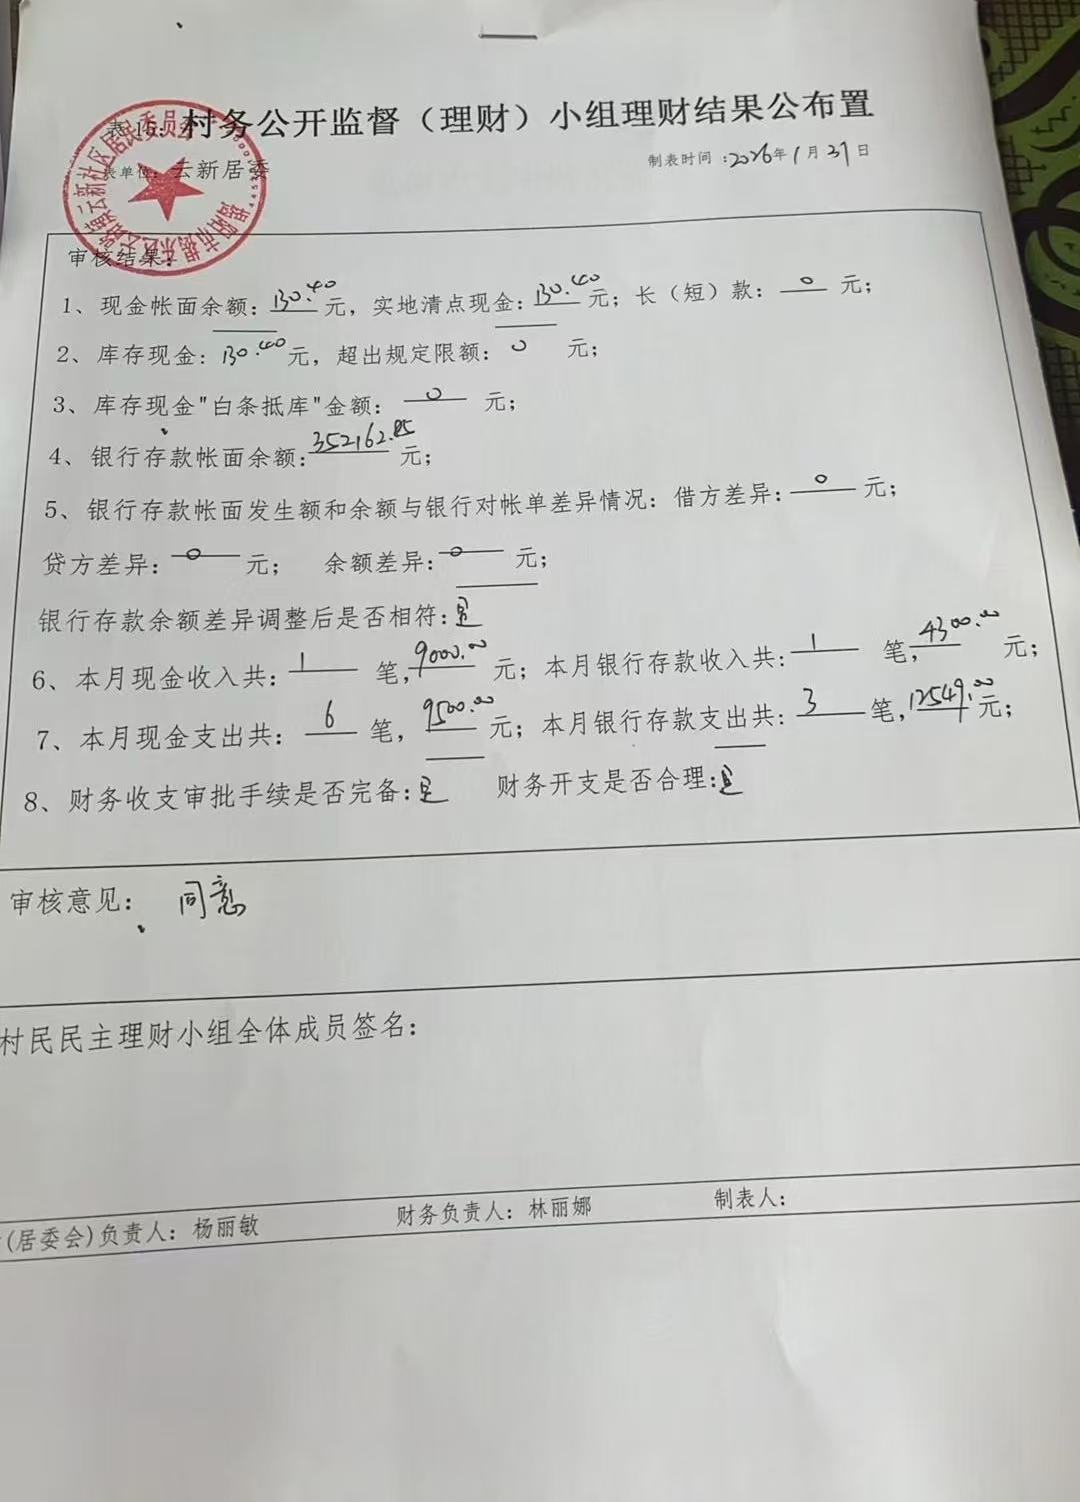 表15：村务公开监督（理财）小组理财结果公布置
表单位：云新居委 制表时间：2026年1月31日
云路镇云新社区居民委员会
审核结果：
1、现金帐面余额：130.40元，实地清点现金：130.40元；长（短）款：0元；
2、库存现金：130.40元，超出规定限额：0元；
3、库存现金"白条抵库"金额：0元；
4、银行存款帐面余额：352162.85元；
5、银行存款帐面发生额和余额与银行对帐单差异情况：借方差异：0元；
贷方差异：0元； 余额差异：0元；
银行存款余额差异调整后是否相符：是
6、本月现金收入共：1笔，9000.00元；本月银行存款收入共：1笔，4300.00元；
7、本月现金支出共：6笔，9500.00元；本月银行存款支出共：3笔，12549.00元；
8、财务收支审批手续是否完备：是 财务开支是否合理：是
审核意见：同意
村民民主理财小组全体成员签名：
(居委会)负责人：杨丽敏 财务负责人：林丽娜 制表人：